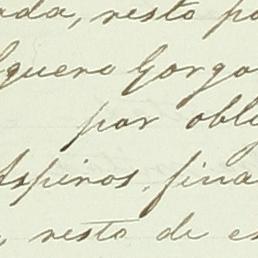 ada, resto po
lguero Gorgo
por obl
Aspiros, fina
, resto de e